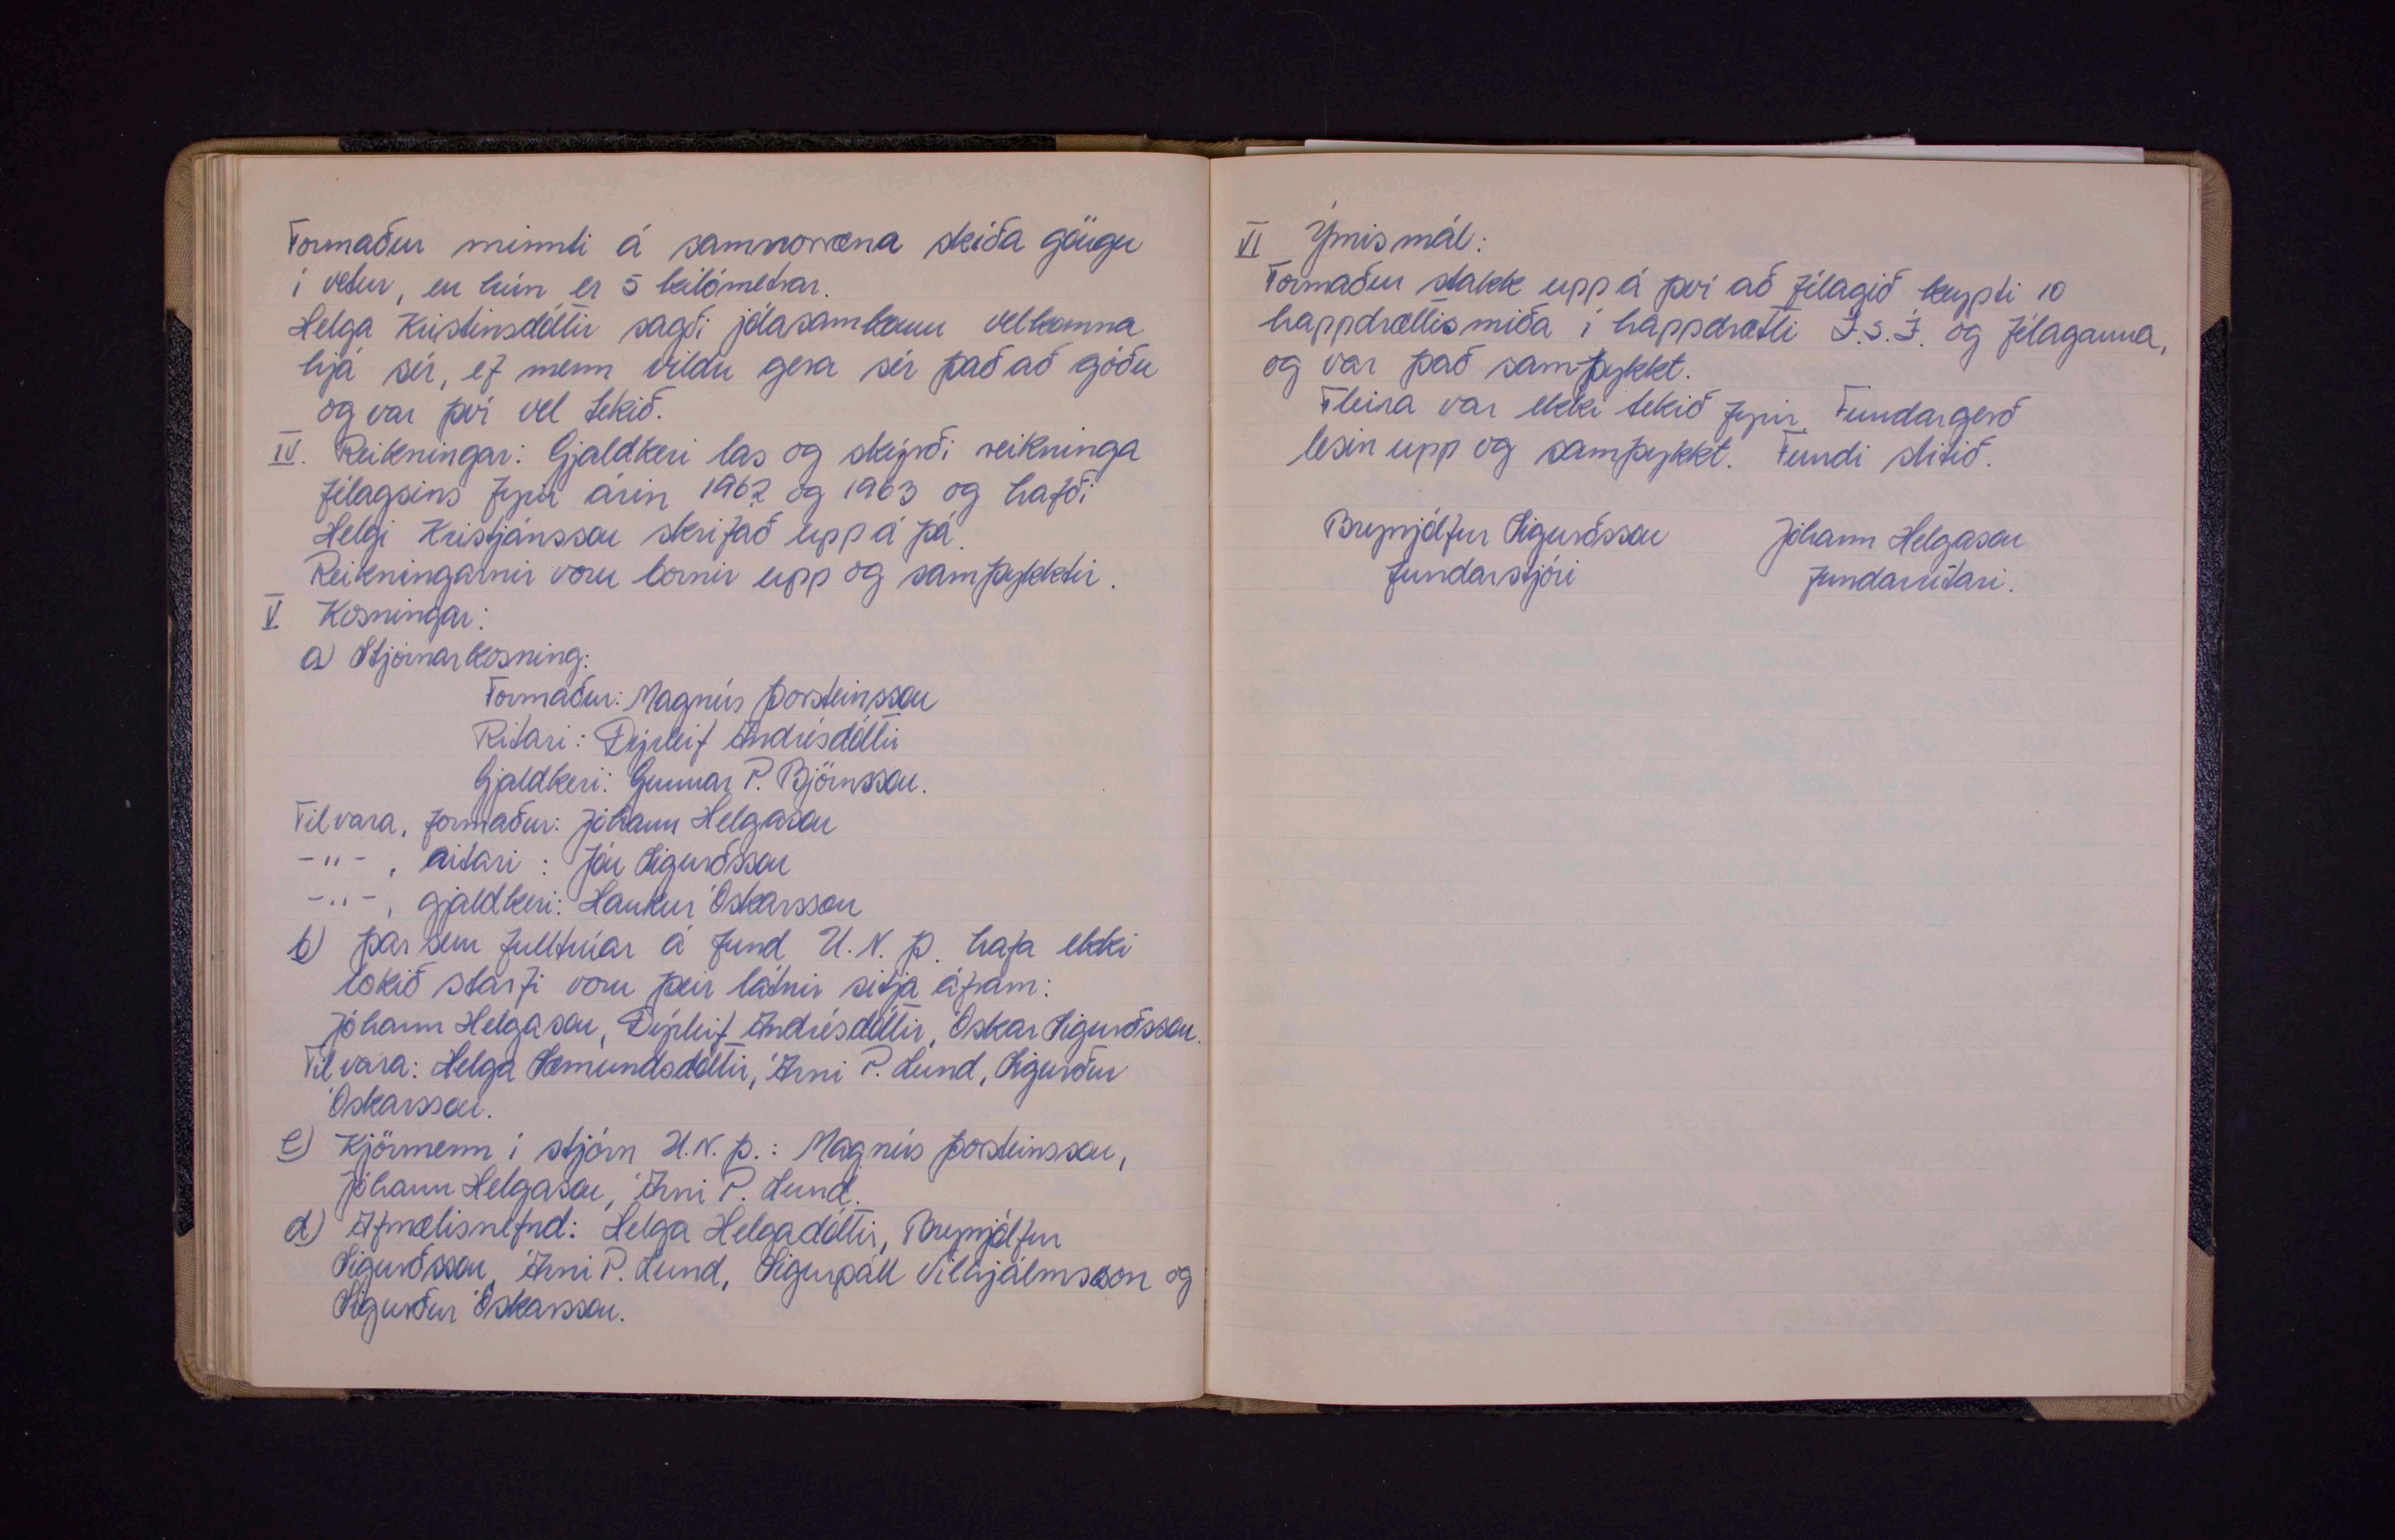 Formaður minnti á samnorræna skíða göngu
í vetur, en hún er 5 kilómetrar.
Helga Kristinsdóttir sagði jólasamkomu velkomna
hjá sér, ef menn vildu gera sér það að góðu
og var því vel tekið.
IV. Reikningar: Gjaldkeri las og skýrði reikninga
félagsins fyrir árin 1962 og 1963 og hafði
Helgi Kristjánsson skrifað upp á þá.
Reikningarnir voru bornir upp og samþykktir.
V Kosningar:
a) Stjórnarkosning:
Formaður: Magnús Þorsteinsson
Ritari: Dýrleif Andrésdóttir
Gjaldkeri: Gunnar P. Björnsson.
Til vara, formaður: Jóhann Helgason
-"- , ritari : Jón Sigurðsson
-"- , gjaldkeri: Haukur Óskarsson
b) Þar sem fulltrúar á fund U.N.Þ. hafa ekki
lokið starfi voru þeir látnir sitja áfram:
Jóhann Helgason, Dýrleif Andrésdóttir, Óskar Sigurðsson.
Til vara: Helga Sæmundsdóttir, Árni P. Lund, Sigurður
Óskarsson.
c) Kjörmenn í stjórn U.N.Þ.: Magnús Þorsteinsson,
Jóhann Helgason, Árni P. Lund.
d) Afmælisnefnd: Helga Helgadóttir, Brynjólfur
Sigurðsson, Árni P. Lund, Sigurpáll Vilhjálmsson og
Sigurður Óskarsson.
VI Ýmis mál:
Formaður stakk upp á því að félagið keypti 10
happdrættismiða í happdrætti Í.S.Í. og félaganna,
og var það samþykkt.
Fleira var ekki tekið fyrir. Fundargerð
lesin upp og samþykkt. Fundi slitið.
Brynjólfur Sigurðsson Jóhann Helgason
fundarstjóri fundarritari.